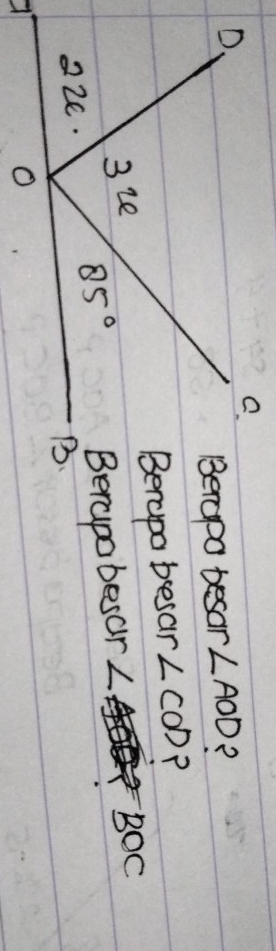 D
C
2x.
3x
85°
O
B
Berapa besar ∠AOD?
Berapa besar ∠COD?
Berapa besar ∠ BOC